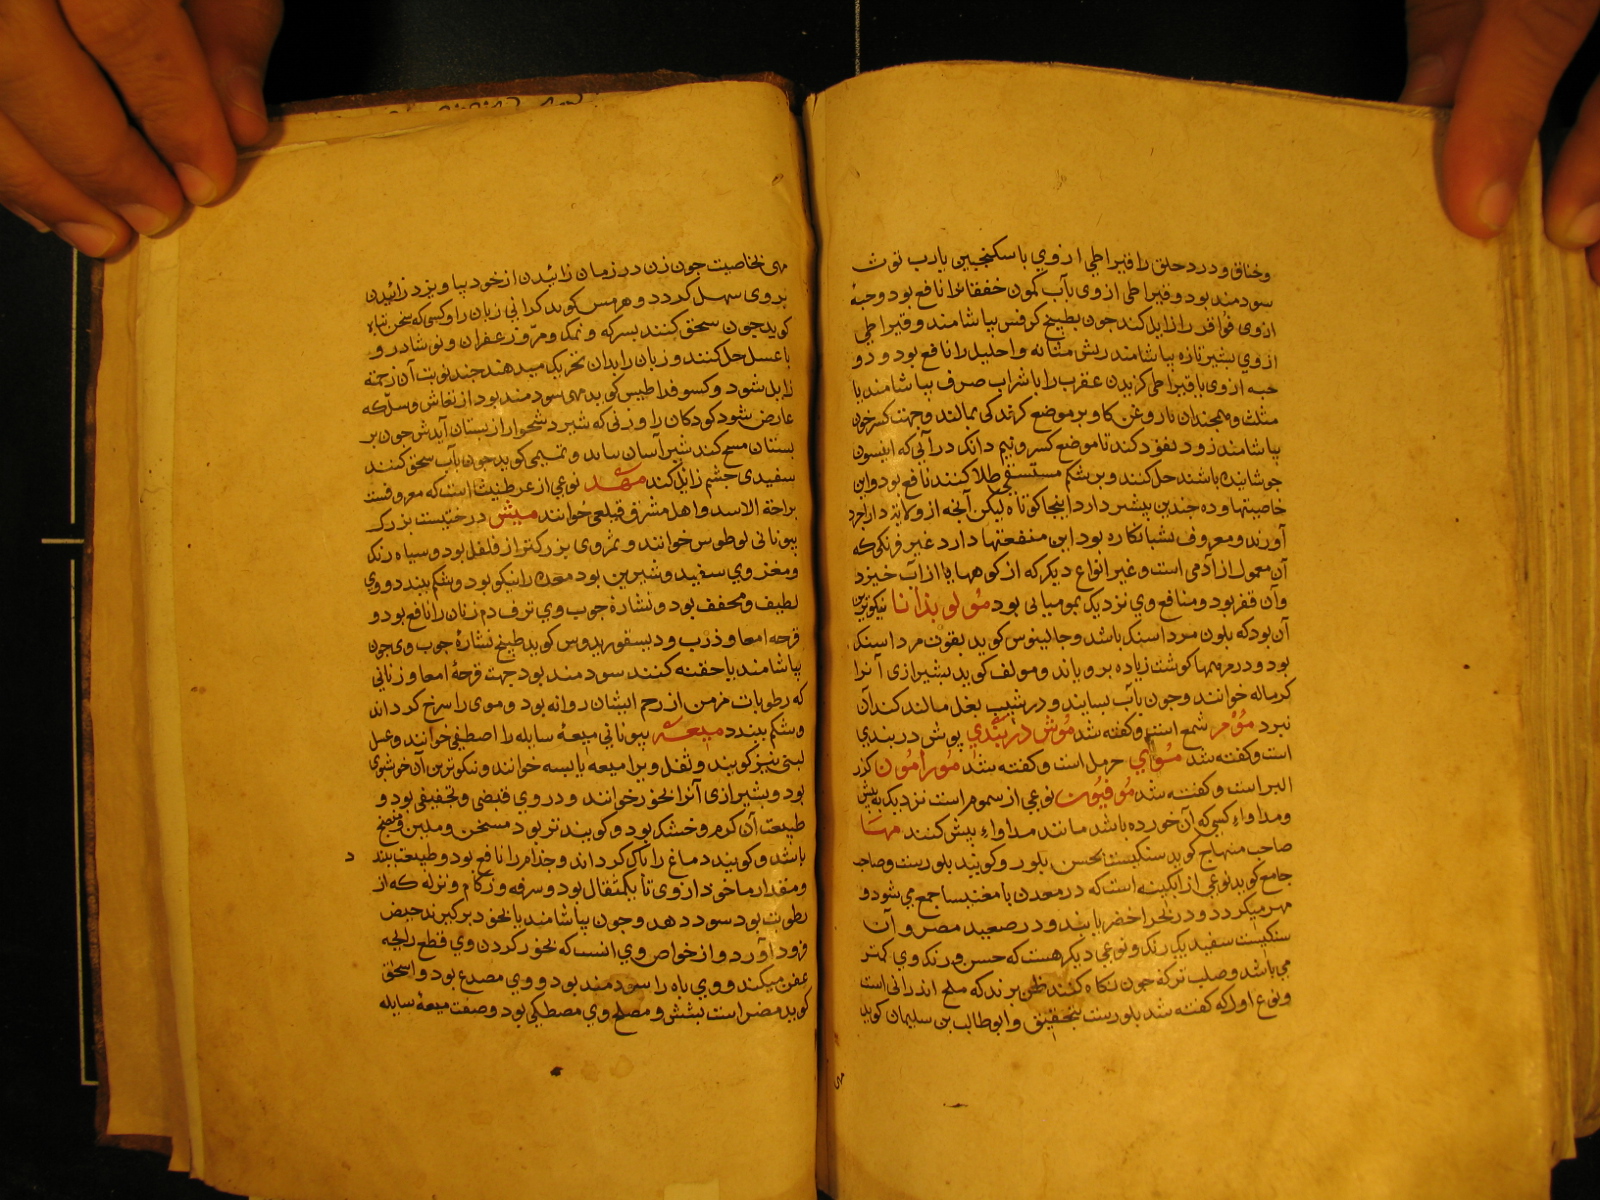 وخناق و درد حلق را قیراطی ازوی با سکنجبین یا رب توث
سودمند بود و قیراطی ازوی بآب کمون خفقانرا نافع بود و حبهٔ
ازوی فواق را زایل کند چون بطبیخ کرفس بیاشامند و قیراطی
ازوی بشیر تازه بیاشامند ریش مثانه و احلیل را نافع بود و دو
حبه ازوی یا قیراطی کزیدن عقرب را با شراب صرف بیاشامند یا
مثلث و همچندان با روغن کاو بر موضع کزندکی بمالند و جهت کسر چون
بیاشامند زود نفوذ کند تا موضع کسر و نیم دانک در آبی که انیسون
جوشانیده باشند حل کنند و بر شکم مستسقی طلا کنند نافع بود و این
خاصیتها و ده چندین بیشتر دارد اینجا کوتاه لیکن آنچه از ولایة دارابجرد
آورند و معروف بشبانکاره بود این منفعتها دارد غیر فرنکی که
آن معمول از آدمی است و غیر انواع دیکر که از کوهها با از آب خیزد
وآن قفر بود و منافع وی نزدیک بمومیائی بود مولوبذانا نیکوترین
آن بود که بلون مرداسنک باشد و جالینوس کوید بقوت مرداسنک
بود و در مرهمها کوشت زیاده برویاند و مولف کوید بشیرازی آنرا
کرماله خوانند و چون بآب بسایند و در شیب بغل مالند کند آن
نبرد موم شمع است و کفته شد موش دربندی پوش دربندی
است و کفته شد موای حرمل است و کفته شد مورامون کزر
البر است و کفته شد موفیون نوعی از سموم است نزدیک به بیش
و مداواء کسی که آن خورده باشد مانند مداواء بیش کنند مهسا
صاحب منهاج کوید سنکیست بحسن بلور و کویند بلورست و صاحب
جامع کوید نوعی از ابکینه است که در معدن با مغنیسا جمع می شود و
مهر میکردد و در بحر اخضر یابند و در صعید مصر و آن
سنکیست سفید یک رنک و نوعی دیکر هست که حسن و رنک وی کمتر
می باشد و صلب تر که چون نکاه کنند ظن برند که ملح اندرانی است
و نوع اول که کفته شد بلورست بتحقیق و ابوطالب بن سلیمان کوید
مهی
مهی بخاصیت چون زن در زمان زائیدن از خود بیاویزد زائیدن
بر وی سهل کردد و هرمس کوید کرانی زبان را و کسی که سخن تباه
کوید چون سحق کنند بسرکه و نمک و مر و زعفران و نوشادر و
با عسل حل کنند و زبان را بدان تحریک میدهند چند نوبت آن زحمت
زایل شود و کسوفراطیس کوید مهی سودمند بود از نعاش و سل که
عارض شود کودکان را و زنی که شیر دشخوار از بستان آیدش چون بر
بستان مسح کند شیر آسان بیاید و تمیمی کوید چون بآب سحق کنند
سفیدی چشم زایل کند مهد نوعی از عرطنیثا است که معروفست
براحة الاسد و اهل مشرق قیلعی خوانند میش درختیست بزرک
بیونانی لوطوس خوانند و ثمر وی بزرکتر از فلفل بود و سیاه رنک
و مغز وی سفید و شیرین بود معده را نیکو بود و شکم ببندد و وی
لطیف و مجفف بود و نشارهٔ چوب وی نزف دم زنان را نافع بود و
قرحه امعا و ذرب و دیسقوریدوس کوید طبیخ نشارهٔ چوب وی چون
بیاشامند یا حقنه کنند سودمند بود جهت قرحهٔ امعا و زنانی
که رطوبات مزمن از رحم ایشان روانه بود و موی را سرخ کرداند
و شکم ببندد میعه بیونانی میعهٔ سایله را اصطفی خوانند و عسل
لبنی نیز کویند و ثفل ویرا میعه یابسه خوانند و نیکوترین آن خوشبوی
بود و بشیرازی آنرا بخور خوانند و در وی قبضی و تجفیفی بود و
طبیعت آن کرم و خشک بود و کویند تر بود مسخن و ملین و منضج
باشد و کویند دماغ را پاک کرداند و جذام را نافع بود و طبیعت ببندد
و مقدار ماخوذ ازوی تا بکمثقال بود و سرفه و زکام و نزله که از
رطوبت بود سود دهد و چون بیاشامند یا بخود برکیرند حیض
فرود آورد و از خواص وی آنست که بخور کردن وی قطع رایحه
عفن میکند و وی باه را سودمند بود و وی مصدع بود و اسحق
کوید مضر است بشش و مصلح وی مصطکی بود و صفت میعهٔ سایله